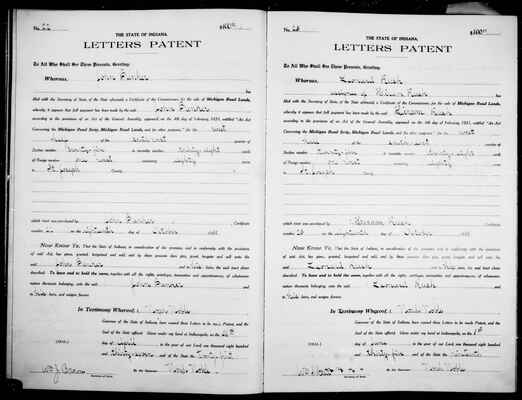 No. 22 $100.00
THE STATE OF INDIANA.
LETTERS PATENT
To All Who Shall See These Presents, Greeting:
Whereas, John Bunker
has
filed with the Secretary of State of the State aforesaid a Certificate of the Commissioners for the sale of Michigan Road Lands,
whereby it appears that full payment has been made by the said John Bunker
according to the provisions of an Act of the General Assembly, approved on the 4th day of February, 1831, entitled "An Act
Concerning the Michigan Road Strip, Michigan Road Lands, and for other purposes," for the west
half of the south west quarter of
Section number twenty-five in Township number thirty-eight north
of Range number one west containing eighty acres
in St. Joseph County
which tract was purchased by John Bunker Certificate
number 22 on the eighteenth day of October
Now Know Ye, That the State of Indiana, in consideration of the premises, and in conformity with the provisions
of said Act, has given, granted, bargained and sold, and by these presents does give, grant, bargain and sell unto the
said John Bunker and to heirs, the said tract above
described. To have and to hold the same, together with all the rights, privileges, immunities and appurtenances, of whatsoever
nature thereunto belonging, unto the said John Bunker
and to heirs, and assigns forever.
In Testimony Whereof, I, Noah Noble
Governor of the State of Indiana, have caused these Letters to be made Patent, and the
Seal of the State affixed. Given under my hand at Indianapolis, on the
(SEAL) day of April in the year of our Lord one thousand eight hundred
and and of the State the
By the Governor Noah Noble
Secretary of State.
No. 23 $100.00
THE STATE OF INDIANA.
LETTERS PATENT
To All Who Shall See These Presents, Greeting:
Whereas, Leonard Rush
assignee of Rush has
filed with the Secretary of State of the State aforesaid a Certificate of the Commissioners for the sale of Michigan Road Lands,
whereby it appears that full payment has been made by the said Rush
according to the provisions of an Act of the General Assembly, approved on the 4th day of February, 1831, entitled "An Act
Concerning the Michigan Road Strip, Michigan Road Lands, and for other purposes," for the west
half of the south west quarter of
Section number twenty-five in Township number thirty-eight north
of Range number one west containing eighty acres
in St. Joseph County
which tract was purchased by Rush Certificate
number 23 on the eighteenth day of October
Now Know Ye, That the State of Indiana, in consideration of the premises, and in conformity with the provisions
of said Act, has given, granted, bargained and sold, and by these presents does give, grant, bargain and sell unto the
said Leonard Rush and to his heirs, the said tract above
described. To have and to hold the same, together with all the rights, privileges, immunities and appurtenances, of whatsoever
nature thereunto belonging, unto the said Leonard Rush
and to heirs, and assigns forever.
In Testimony Whereof, I, Noah Noble
Governor of the State of Indiana, have caused these Letters to be made Patent, and the
Seal of the State affixed. Given under my hand at Indianapolis, on the 1st
(SEAL) day of June in the year of our Lord one thousand eight hundred
and thirty-five and of the State the nineteenth
By the Governor Noah Noble
Secretary of State.